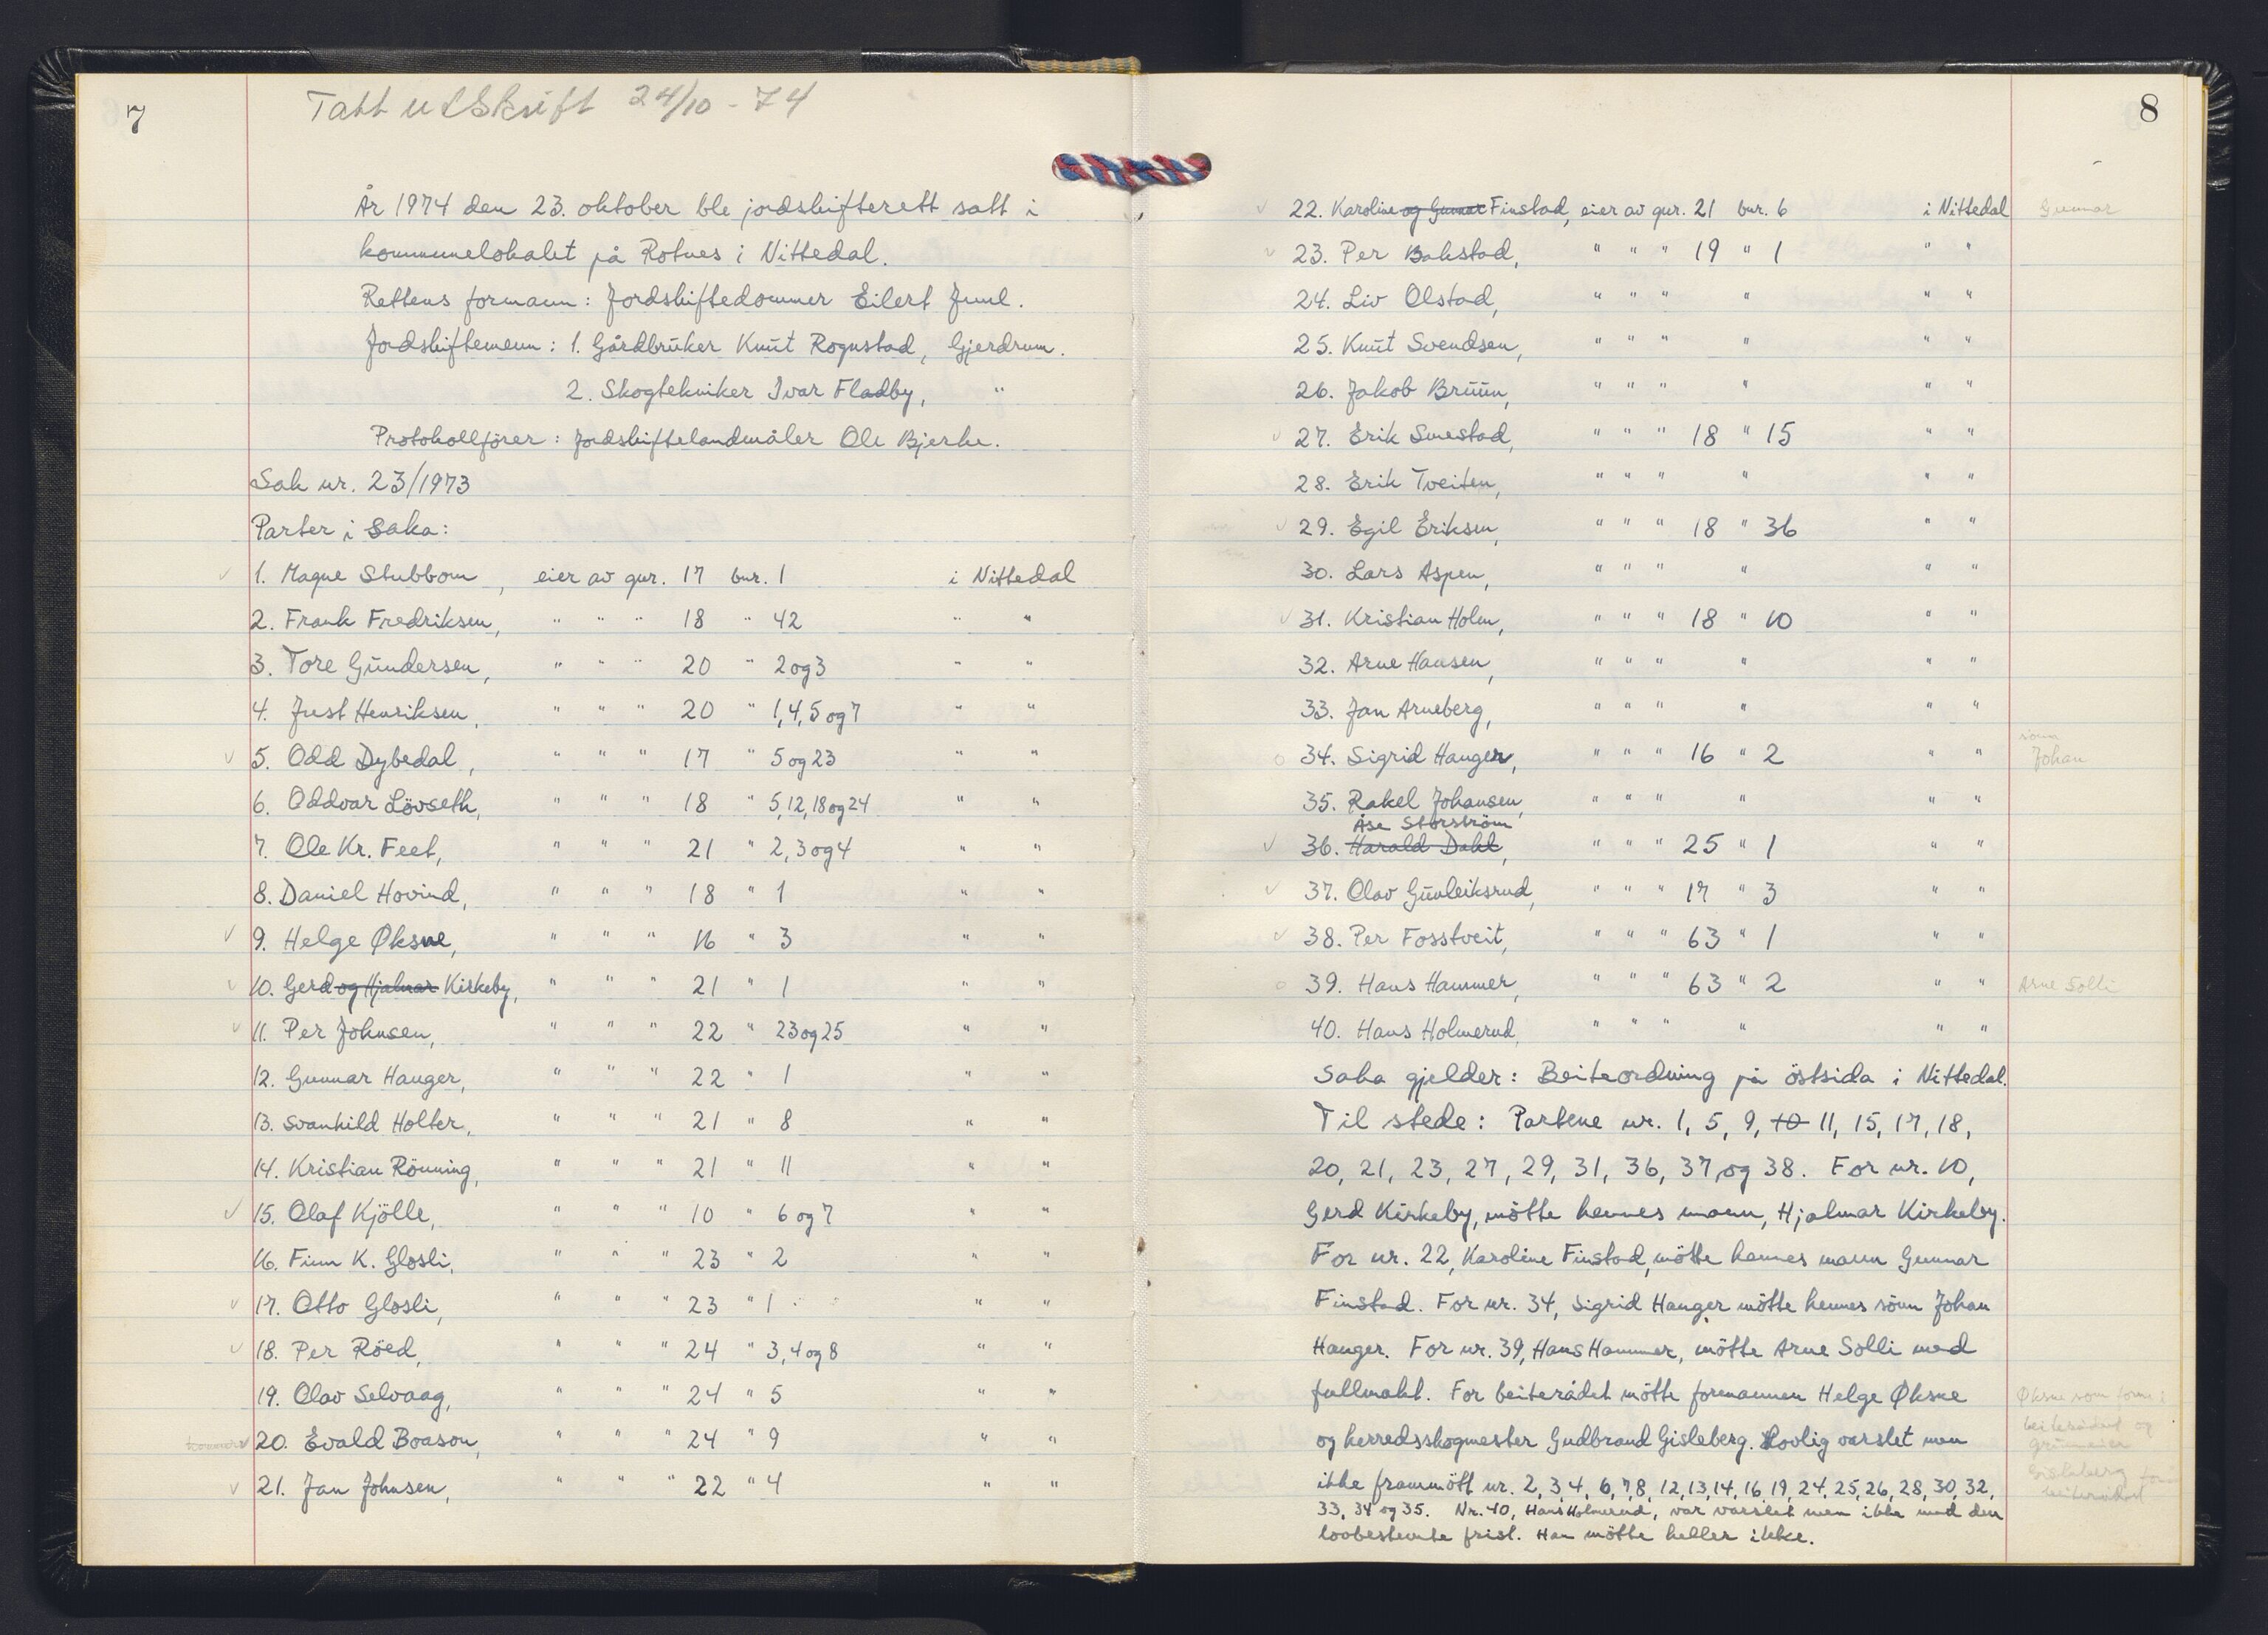 7
Tatt utskrift 24/10 - 74
År 1974 den 23. oktober ble jordskifterett satt i
kommunelokalet på Rotnes i Nittedal.
Rettens formann: Jordskiftedommer Eilert Juul.
Jordskiftemenn: 1. Gårdbruker Knut Rognstad, Gjerdrum.
2. Skogtekniker Ivar Fladby, "
Protokollfører: Jordskiftelandmåler Ole Bjerke.
Sak nr. 23/1973
Parter i saka:
✓ 1. Magne Stubbom, eier av gnr. 17 bnr. 1 i Nittedal
2. Frank Fredriksen, " " " 18 " 42 " "
3. Tore Gundersen, " " " 20 " 2 og 3 " "
4. Just Henriksen, " " " 20 " 1, 4, 5 og 7 " "
✓ 5. Odd Dybedal, " " " 17 " 5 og 23 " "
6. Oddvar Lövseth, " " " 18 " 5, 12, 18 og 24 " "
7. Ole Kr. Feet, " " " 21 " 2, 3 og 4 " "
8. Daniel Hovind, " " " 18 " 1 " "
✓ 9. Helge Øksne, " " " 16 " 3 " "
✓ 10. Gerd og Hjalmar Kirkeby, " " " 21 " 1 " "
✓ 11. Per Johnsen, " " " 22 " 23 og 25 " "
12. Gunnar Hauger, " " " 22 " 1 " "
13. Svanhild Holter, " " " 21 " 8 " "
14. Kristian Rönning, " " " 21 " 11 " "
✓ 15. Olaf Kjölle, " " " 10 " 6 og 7 " "
16. Finn K. Glosli, " " " 23 " 2 " "
✓ 17. Otto Glosli, " " " 23 " 1 " "
✓ 18. Per Röed, " " " 24 " 3, 4 og 8 " "
19. Olav Selvaag, " " " 24 " 5 " "
✓ 20. Evald Boason, " " " 24 " 9 " "
✓ 21. Jan Johnsen, " " " 22 " 4 " "
8
✓ 22. Karoline og Gunnar Finstad, eier av gnr. 21 bnr. 6 i Nittedal Gunnar
✓ 23. Per Bakstad, " " " 19 " 1 " "
24. Liv Olstad, " " " " " "
25. Knut Svendsen, " " " " " "
26. Jakob Bruun, " " " " " "
✓ 27. Erik Smestad, " " " 18 " 15 " "
28. Erik Tveiten, " " " " " "
✓ 29. Egil Eriksen, " " " 18 " 36 " "
30. Lars Aspen, " " " " " "
✓ 31. Kristian Holm, " " " 18 " 10 " "
32. Arne Hansen, " " " " " "
33. Jan Arneberg, " " " " " "
o 34. Sigrid Hauger, " " " 16 " 2 " " sønn Johan
35. Rakel Johansen, " " " " " "
Åse Storström
✓ 36. Harald Dahl, " " " 25 " 1 " "
✓ 37. Olav Gunleiksrud, " " " 17 " 3 " "
✓ 38. Per Fosstveit, " " " 63 " 1 " "
o 39. Hans Hammer, " " " 63 " 2 " " Arne Solli
40. Hans Holmerud, " " " " " "
Saka gjelder: Beiteordning på östsida i Nittedal.
Til stede: Partene nr. 1, 5, 9, 10 11, 15, 17, 18,
20, 21, 23, 27, 29, 31, 36, 37, og 38. For nr. 10,
Gerd Kirkeby, mötte hennes mann, Hjalmar Kirkeby.
For nr. 22, Karoline Finstad, mötte hennes mann Gunnar
Finstad. For nr. 34, Sigrid Hauger mötte hennes sönn Johan
Hauger. For nr. 39, Hans Hammer, mötte Arne Solli med
fullmakt. For beiterådet mötte formannen Helge Øksne
og herredsskogmester Gudbrand Gisleberg. Lovlig varslet men
ikke frammött nr. 2, 3, 4, 6, 7, 8, 12, 13, 14, 16, 19, 24, 25, 26, 28, 30, 32,
33, 34 og 35. Nr. 40, Hans Holmerud, var varslet men ikke med den
lovbestemte frist. Han mötte heller ikke.
Øksne som form. i
beiterådet og
grunneier
Gisleberg for
beiterådet